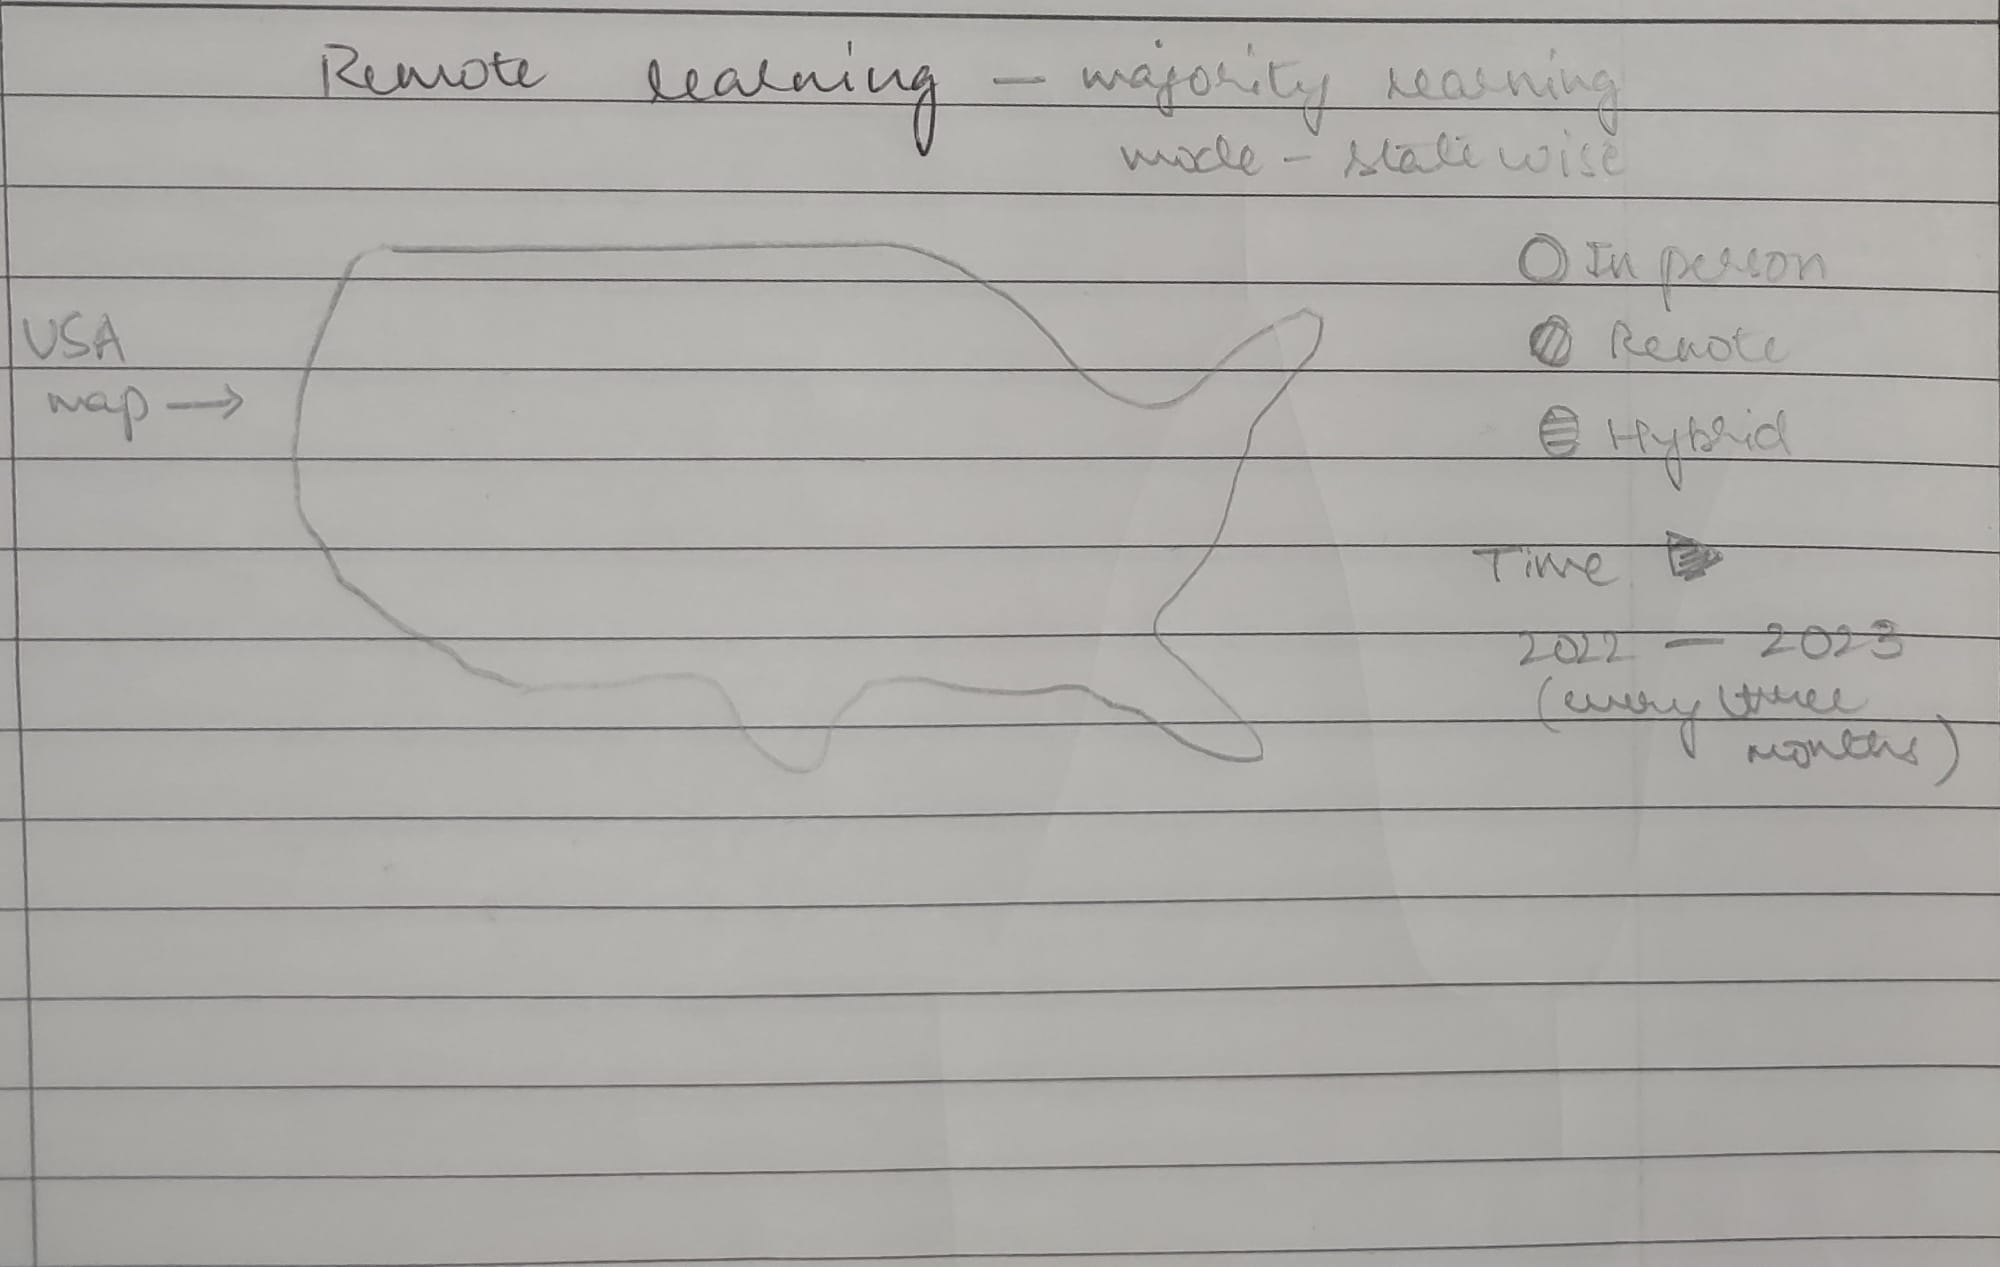 Remote learning - majority learning
mode - state wise
In person
USA
Remote
map →
Hybrid
Time
2022 - 2023
(every three
months)